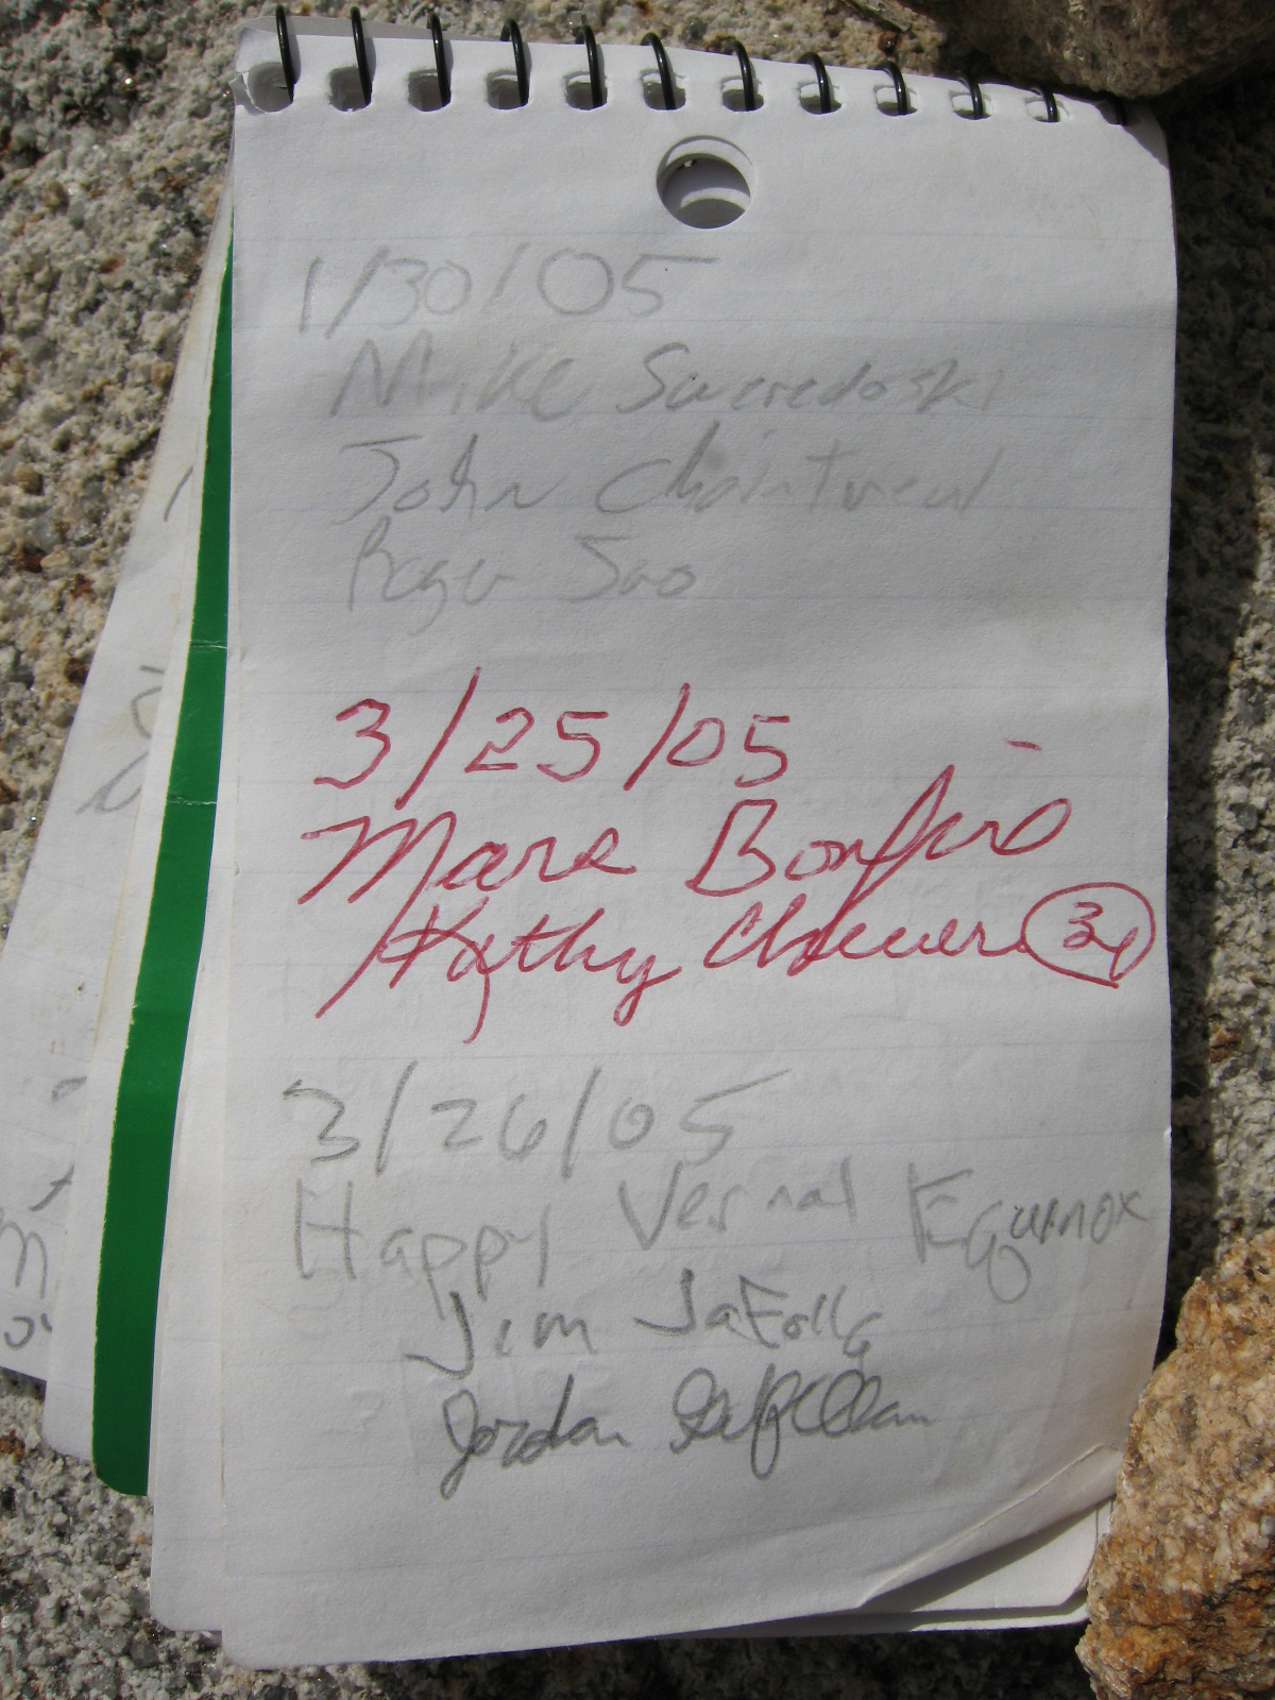 1/30/05
Mike Sweredoski
John Chaintreuil
Roger Sao
3/25/05
Mark Bonfiro
Kathy Cheever
3/26/05
Happy Vernal Equinox
Jim
Jordan